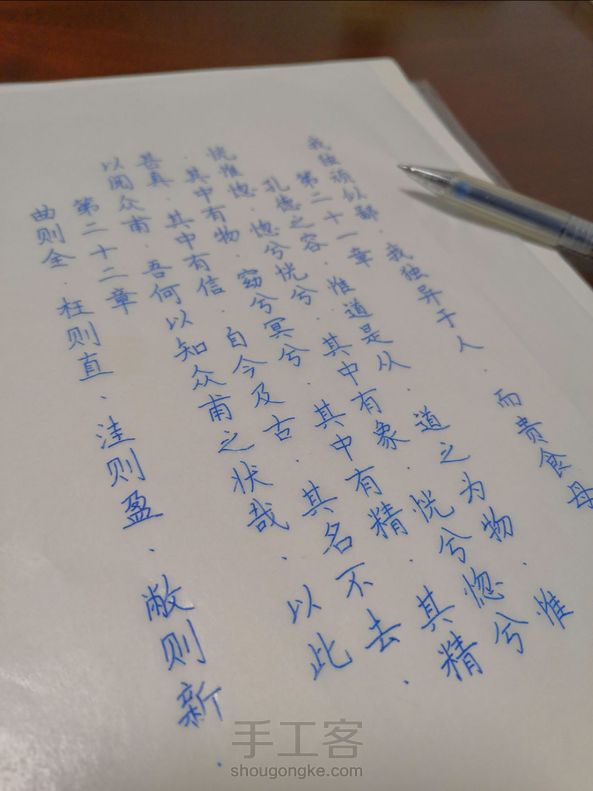 我独顽以鄙.我独异于人.而贵食母
第二十一章
孔德之容.惟道是从.道之为物.惟
恍惟惚.惚兮恍兮.其中有象.恍兮惚兮
.其中有物.窈兮冥兮.其中有精.其精
甚真.其中有信.自今及古.其名不去.
以阅众甫.吾何以知众甫之状哉.以此
第二十二章
曲则全.枉则直、洼则盈.敝则新.
手工客
shougongke.com